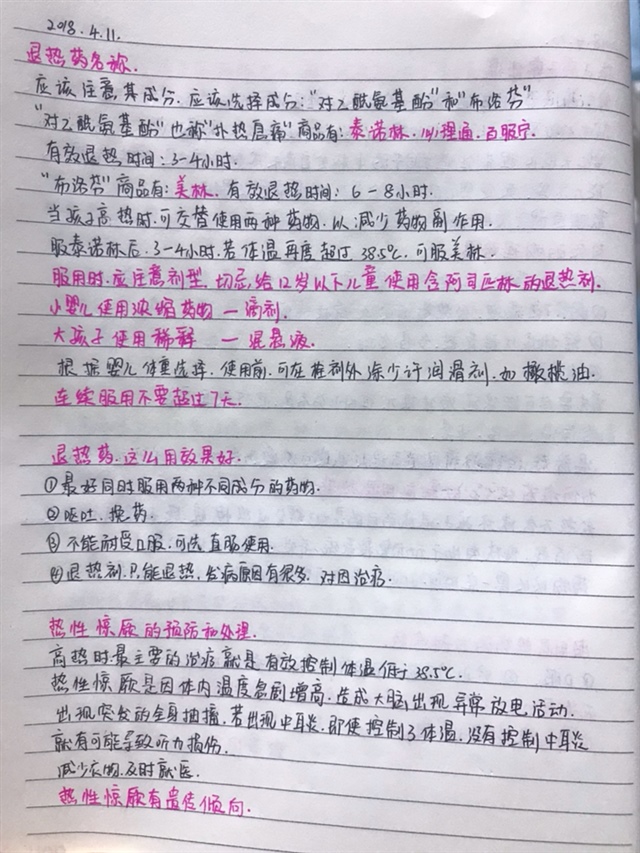 2018.4.11.
退热药名称.
应该注意其成分.应该选择成分:"对乙酰氨基酚"和"布洛芬"
"对乙酰氨基酚"也称"扑热息痛"商品有:泰诺林.必理通.百服宁.
有效退热时间:3-4小时.
"布洛芬"商品有:美林.有效退热时间:6-8小时.
当孩子高热时.可交替使用两种药物.以减少药物副作用.
服泰诺林后.3-4小时.若体温再度超过38.5℃.可服美林.
服用时.应注意剂型.切忌给12岁以下儿童使用含阿司匹林的退热剂.
小婴儿使用浓缩药物—滴剂.
大孩子使用稀释 —混悬液.
根据婴儿体重选择.使用前.可在栓剂外涂少许润滑剂.如橄榄油.
连续服用不要超过7天.
退热药.这么用效果好.
①最好同时服用两种不同成分的药物.
②呕吐.换药.
③不能耐受口服.可选直肠使用.
④退热剂.只能退热.发病原因有很多.对因治疗.
热性惊厥的预防和处理.
高热时.最主要的治疗就是有效控制体温低于38.5℃.
热性惊厥是因体内温度急剧增高.造成大脑出现异常放电活动.
出现突发的全身抽搐.若出现中耳炎.即使控制了体温.没有控制中耳炎
就有可能导致听力损伤.
减少衣物.及时就医.
热性惊厥有遗传倾向.